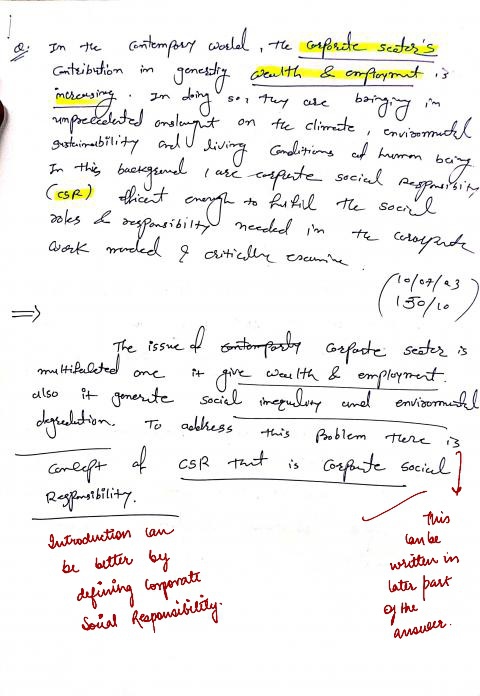 Q. In the contempory world, the corporate seater's
Contribution in generatig wealth & employmet is
increasing. In doing so, they are bringing in
unprecedented onslaught on the climate, environmental
sustainibility and living Conditions of human being
In this background, are corporate social Responsibility
(CSR) efficent enough to fulfil the social
roles & responsibilty needed in the corporate
work & critically examine
(10/07/23
150/10)
⇒
The issue of contemporty corporte seater is
multifaceted one it give wealth & employment.
also it generate social inequality and environmental
degredation. To address this Problem there is
concept of CSR that is corporte social
Responsibility.
Introduction can
be better by
defining Corporate
Social Responsibility.
This
can be
written in
later part
of the
answer.